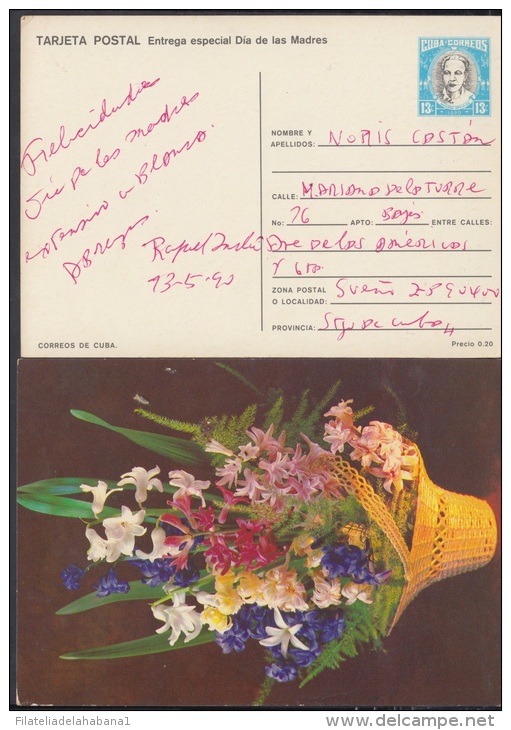 TARJETA POSTAL Entrega especial Día de las Madres
CUBA·CORREOS
13c 1990 13c
Felicidades
Día de las madres
extensivo a Blanca.
Abrazos.
13-5-90
NOMBRE Y
APELLIDOS: NORIS CASTÁN
CALLE: MARIANO DE LA TORRE
No: 26 APTO: Bajos ENTRE CALLES:
Ave de las Américas
y 6ta
ZONA POSTAL
O LOCALIDAD: Sueño ZP 90400
PROVINCIA: Stgo de Cuba
CORREOS DE CUBA.
Precio 0.20
Filateliadelahabana1